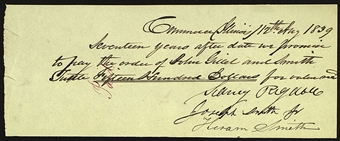 Commerce Illinois 12th Aug 1839
Seventeen years after date we promise
to pay the order of John and Smith
Tuttle Fifteen Hundred Dollars for
Sidney Rigdon
Joseph Smith Jr
Hiram Smith